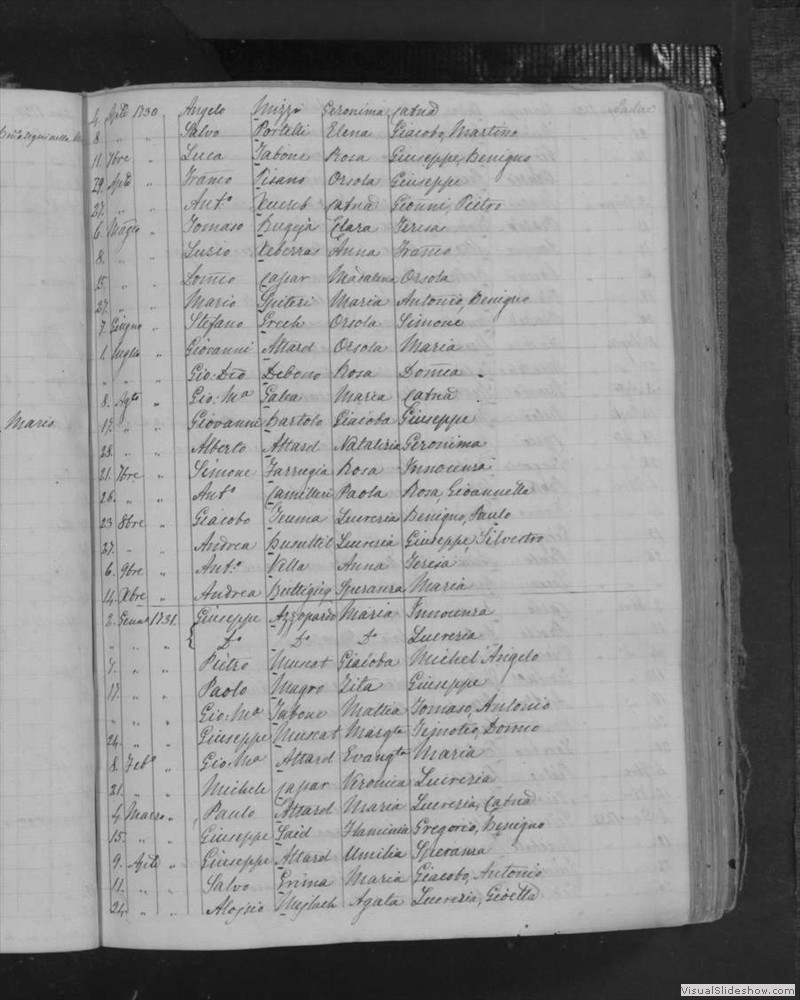 4. Aple 1730 Angelo Mizzi Geronima Catna
8 " " Salvo Portelli Elena Giacobo, Martino
11. 7bre " Luca Tabone Rosa Giuseppe, Benigno
29. Aple " Franco Pisano Orsola Giuseppe
27. " " Anto Xuereb Catna Gionni, Pietro
6 Maggio " Tomaso Bugeja Clara Teresa
8. " " Luzio Xeberras Anna Franco
15. " " Lonco Capar Madalena Orsola
27. " " Mario Spiteri Maria Antonio, Benigno
7. Giugno " Stefano Grech Orsola Simone
1. Luglio " Giovanni Attard Orsola Maria
" " " Gio: Dio Debono Rosa Domca
8. Agto " Gio: Ma Galea Maria Catna
Mario 17. " " Giovanni Bartolo Giacoba Giuseppe
28. " " Alberto Attard Natalizia Geronima
21. 7bre " Simone Farrugia Rosa Innocenza
26. " " Anto Camilleri Paola Rosa, Gioannella
23 8bre " Giacobo Teuma Lucrezia Benigno, Paulo
27. " " Andrea Busuttil Lucrezia Giuseppe, Silvestro
6. 9bre " Anto Vella Anna Teresa
14. Xbre " Andrea Buttigieg Speranza Maria
2. Genno 1731. Giuseppe Azzopardo Maria Innocenza
" " " Do Do Do Lucrezia
7. " " Pietro Muscat Giacoba Michel'Angelo
17. " " Paolo Magro Zita Giuseppe
" " " Gio: Ma Tabone Mattia Tomaso, Antonio
24. " " Giuseppe Muscat Margta Timoteo, Domco
8. Febo " Gio: Ma Attard Evangta Maria
21. " " Michele Capar Veronica Lucrezia
4 Marzo " Paulo Attard Maria Lucrezia, Catna
15. " " Giuseppe Said Flaminia Gregorio, Benigno
9. Aple " Giuseppe Attard Umilia Speranza
11. " " Salvo Grima Maria Giacobo, Antonio
24. " " Alojsio Mejlach Agata Lucrezia, Gioetta
VisualSlideshow.com